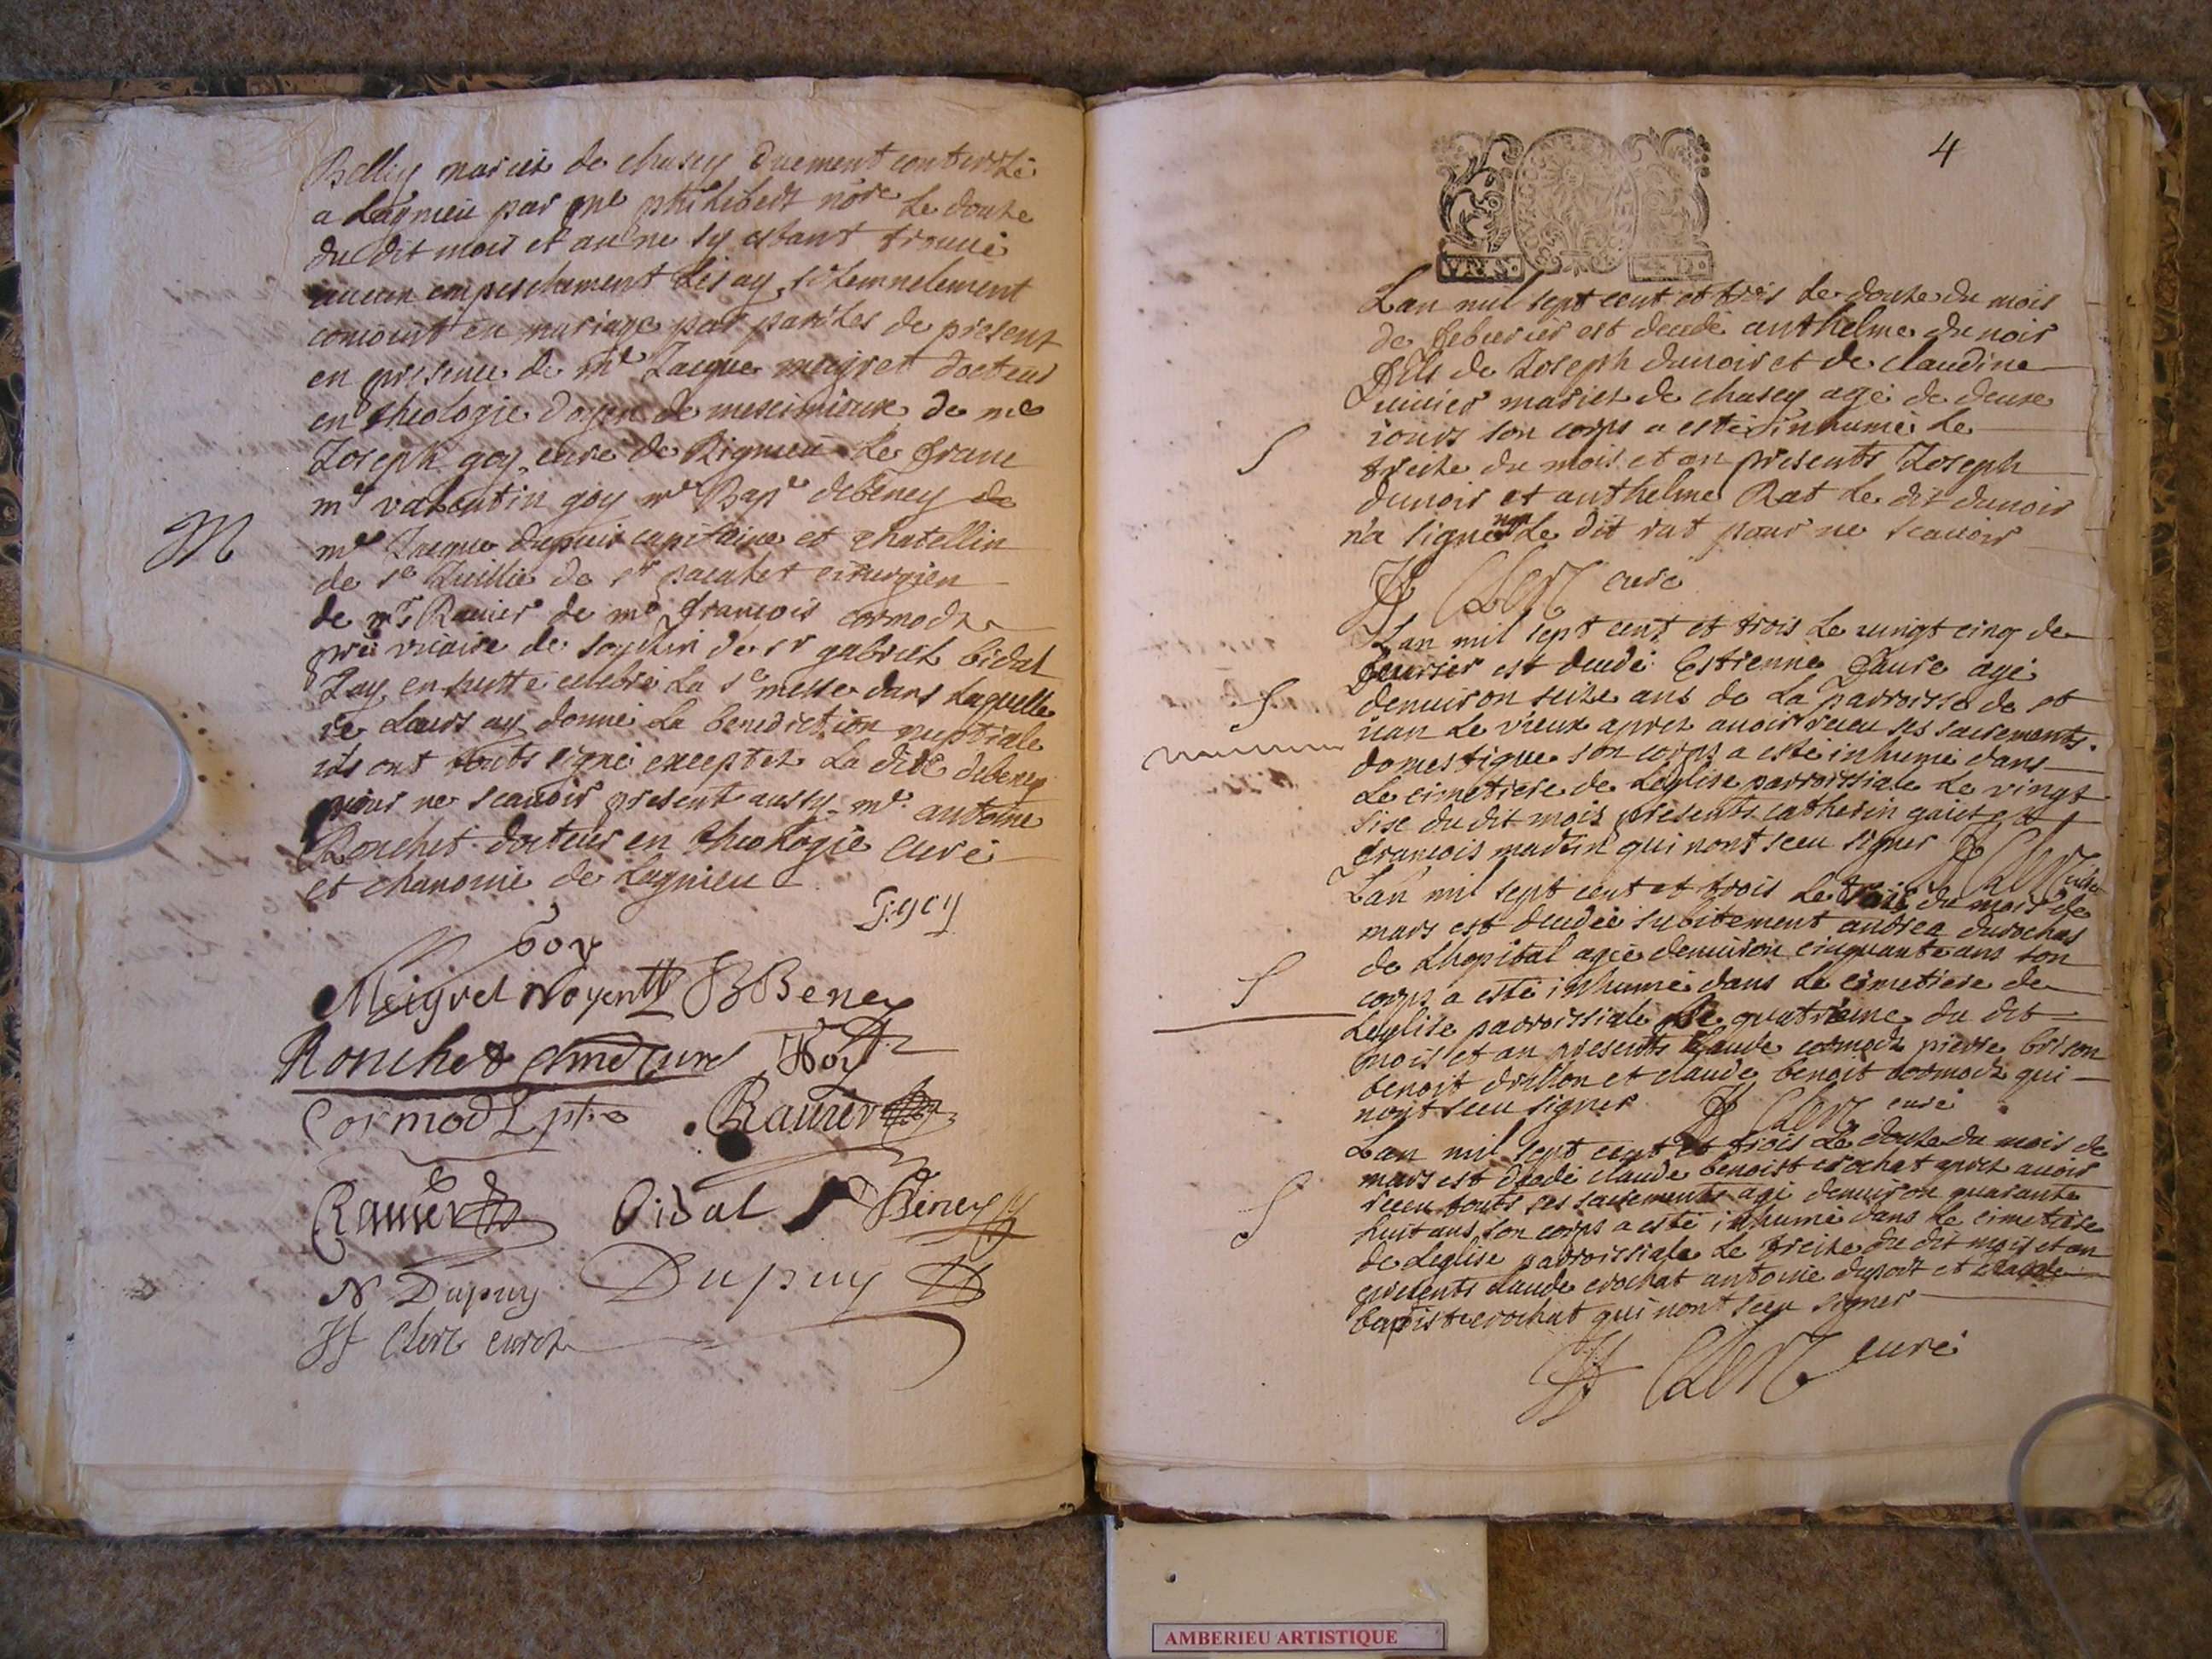 Belliy mariez de chasey duement controllé
a Lagnieu par me philibert nore Le douze
du dit mois et an ne sy estant trouvé
aucun empeschement Les ay solemnelement
conioint en mariage par parolles de present
en presence de mre Jacque meigret docteur
en theologie doyen de meximieux de me
Joseph goy curé de Rignieu Le franc
me valentin goy me Bapt debeney de
me Jacque dupuis capitaine et chatellin
de st Juillie de sr pacalet cirurgien
de mr Ravier de me françois cormodz
pre vicaire de de sr gabriel bidal
Jay ensuitte celebré La ste messe dans Laquelle
je Leurs ay donné La benediction nuptiale
ils ont touts signé exceptez La dite debeney
pour ne scavoir present aussy me antoine
Ronchet docteur en theologie curé
et chanoine de Lagnieu
J. goy
Goy
Meigret Doyen B Beney
Ronchet curé Goy
Cormodz ptre Ravier
Ravier Vidal Beney
N Dupuy Dupuy
Clerc curez
M
4
Lan mil sept cent et trois Le douze du mois
de febvrier est decedé anthelme dunoir
fils de Joseph dunoir et de claudine
mariez de chasey agé de deux
iours son corps a esté inhumé Le
treize du mois et an presents Joseph
dunoir et anthelme Rat Le dit dunoir
n'a signé non Le dit rat pour ne scavoir
Clerc curé
S
Lan mil sept cent et trois Le vingt cinq de
feuvrier est decedé Estienne faure agé
denuiron seize ans de La parroisse de st
uan Le vieux apres avoir receu ses sacrements
domestique son corps a esté inhumé dans
Le cimetiere de Leglise parroissiale Le vingt
sixe du dit mois presents catherin gaiet et
francois martin qui nont sceu signer Clerc curé
S
Lan mil sept cent et trois Le trois du mois de
mars est decedée subitement andrea durochas
de Lhopital agée denuiron cinquante ans son
corps a esté inhumé dans Le cimetiere de
Leglise parroissiale Le quatrieme du dit
mois et an presents claude cormodz pierre brison
benoit drillon et claude benoit cormodz qui
nont sceu signer Clerc curé
S
Lan mil sept cent et trois Le douze du mois de
mars est decedé claude benoist crochat apres avoir
receu touts ses sacrements agé denuiron quarante
huit ans son corps a esté inhumé dans Le cimetiere
de Leglise parroissiale Le treize du dit mois et an
presents claude crochat antoine duport et claude
baptiste crochat qui nont sceu signer
Clerc curé
S
AMBERIEU ARTISTIQUE